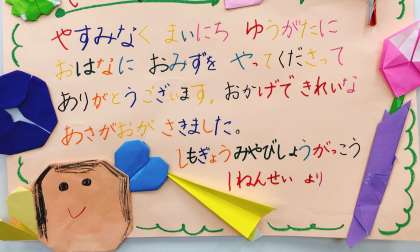 やすみなく まいにち ゆうがたに
おはなに おみずを やってくださって
ありがとうございます。おかげできれいな
あさがおが さきました。
しもぎょうみやびしょうがっこう
1ねんせい より